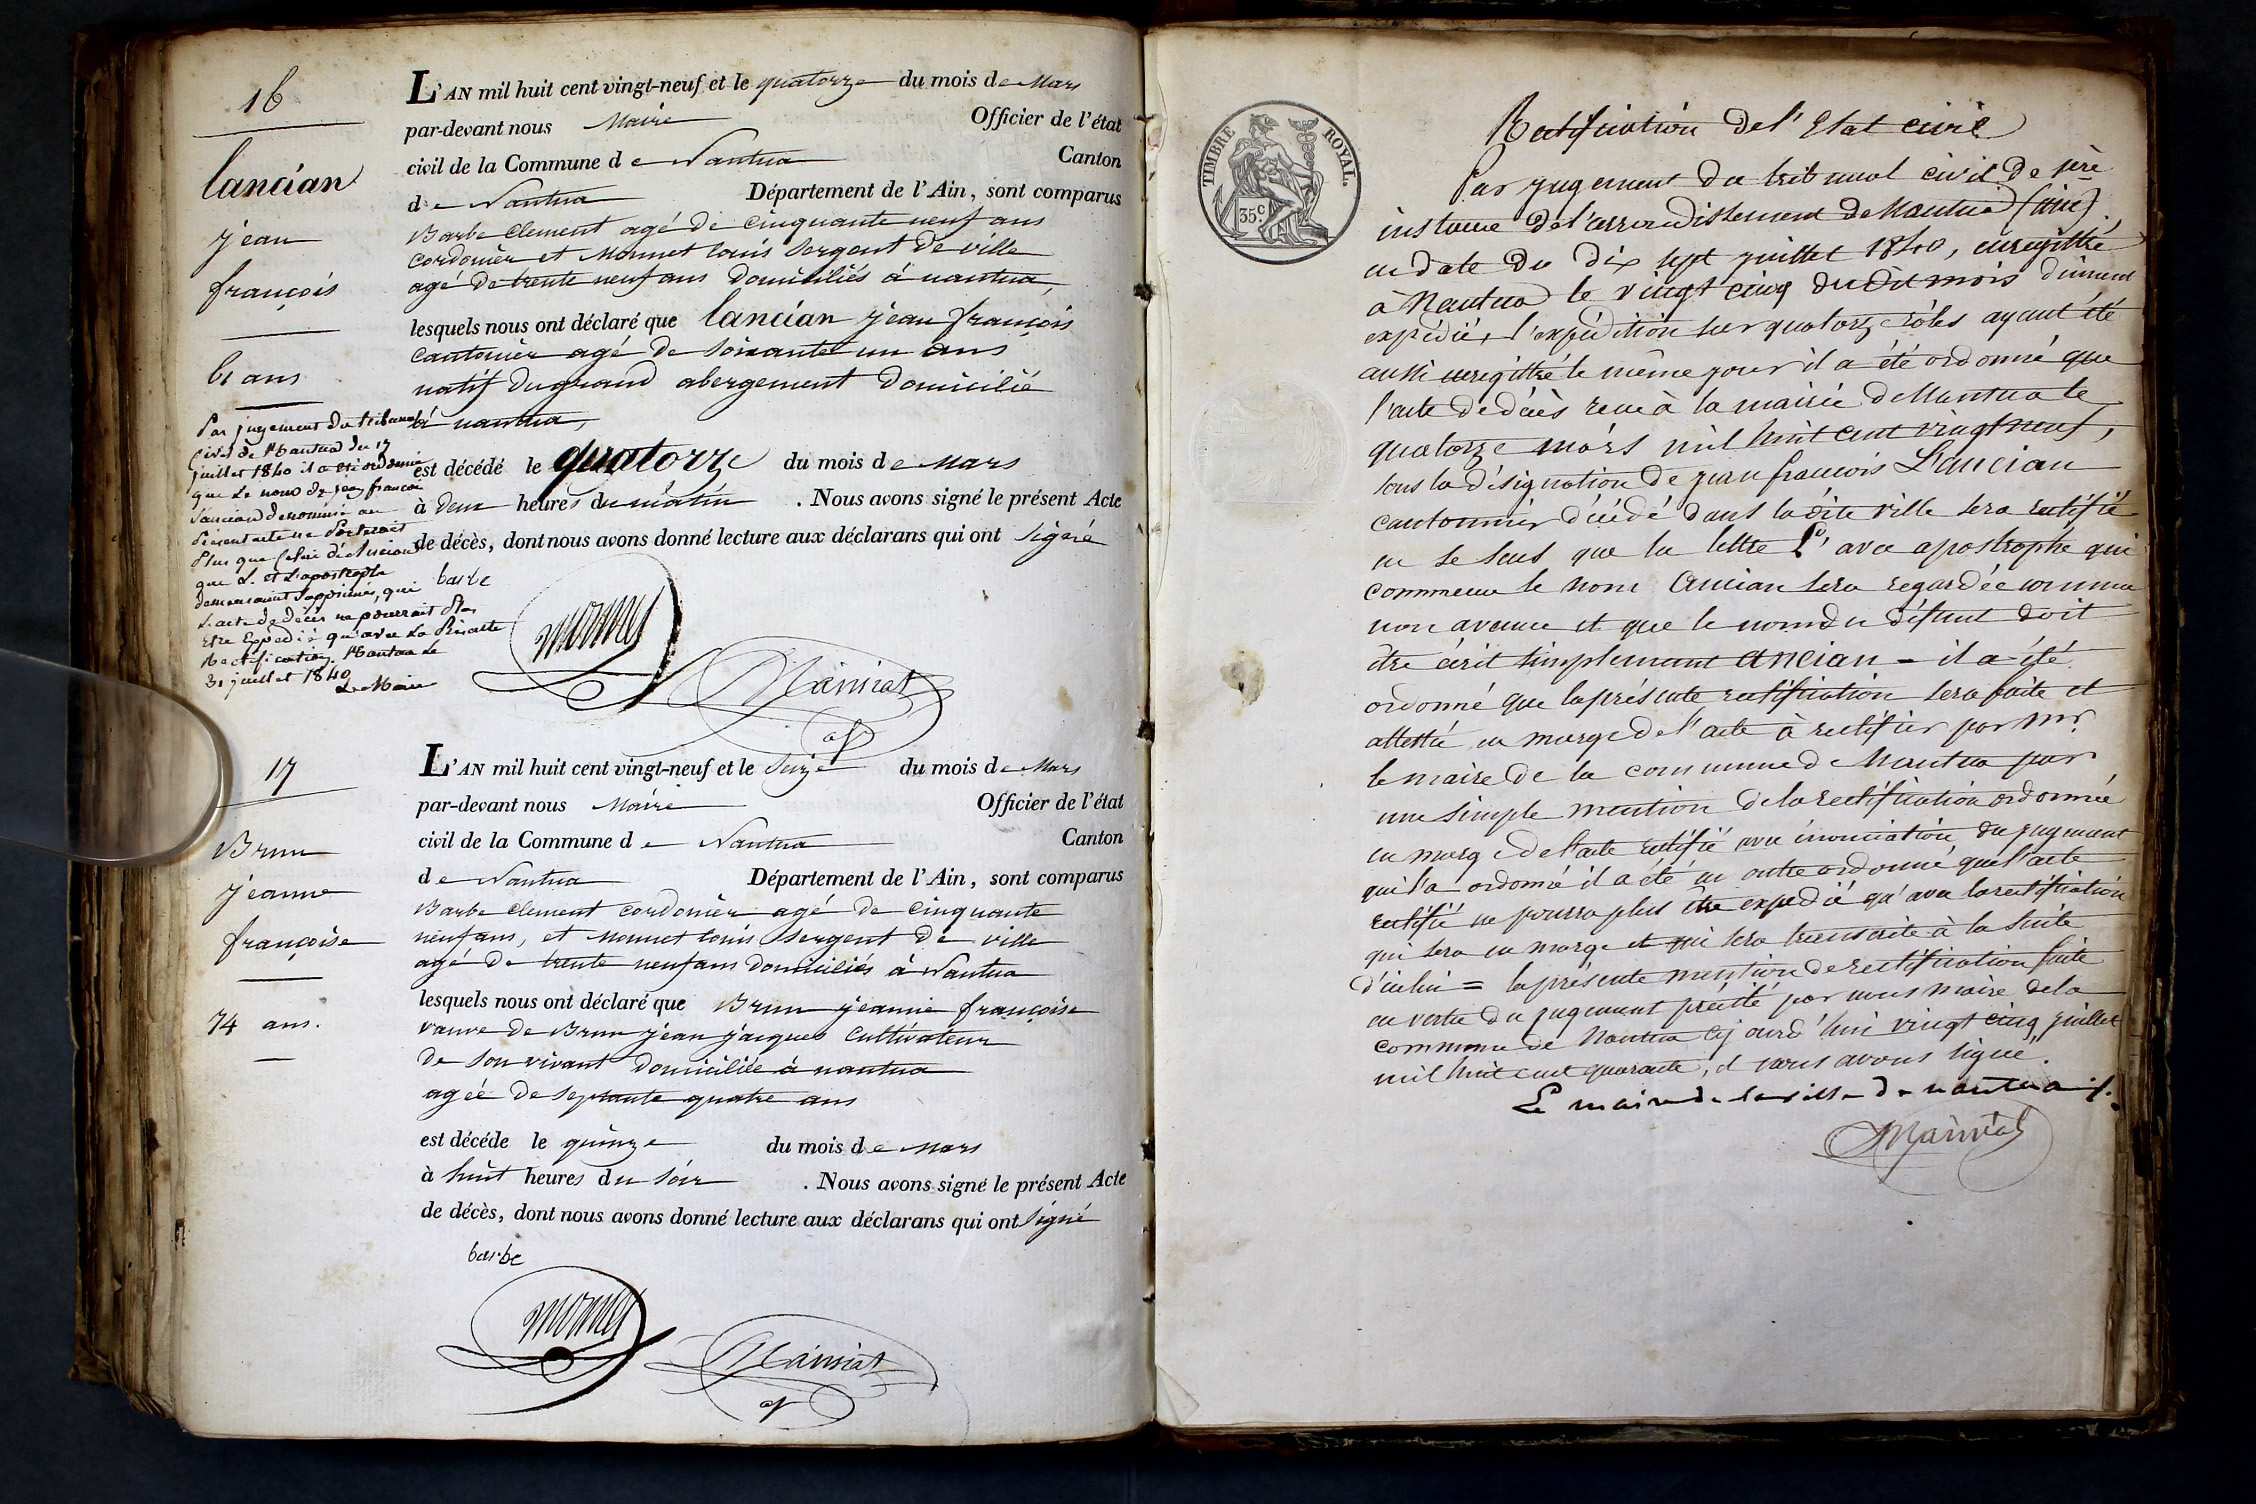 16
lancian
jean
françois
61 ans
Par jugement du tribunal
civil de Nantua du 17
juillet 1840 il a été ordonné
que le nom de jean françois
Lancian denommé au
Présent acte ne Porterait
Plus que Celui d'Ancian
que L. et L'apostrophe
demeuraient Supprimés, qui
L'acte de décès ne pourrait Plus
Etre Expédié qu'avec La Présente
Rectification. Nantua Le
31 juillet 1840
Le Maire
L'AN mil huit cent vingt-neuf et le quatorze du mois de Mars
par-devant nous Maire Officier de l'état
civil de la Commune de Nantua Canton
de Nantua Département de l'Ain, sont comparus
Barbe Clement agé de cinquante neuf ans
cordonier et Monnet louis Sergent de ville
agé de trente neuf ans Domiciliés à nantua,
lesquels nous ont déclaré que lancian jean françois
cantonier agé de Soixante un ans
natif du grand abergement Domicilié
à nantua,
est décédé le quatorze du mois de Mars
à deux heures du matin . Nous avons signé le présent Acte
de décès, dont nous avons donné lecture aux déclarans qui ont signé
barbe
monnet
Mainiat
17
Brun
jeanne
françoise
74 ans.
L'AN mil huit cent vingt-neuf et le Seize du mois de Mars
par-devant nous Maire Officier de l'état
civil de la Commune de Nantua Canton
de Nantua Département de l'Ain, sont comparus
Barbe Clement cordonier agé de cinquante
neuf ans, et Monnet louis Sergent de ville
agé de trente neuf ans Domiciliés à Nantua
lesquels nous ont déclaré que Brun jeanne françoise
veuve de Brun jean jacques Cultivateur
de Son vivant Domiciliée à nantua
agée de Septante quatre ans
est décéde le quinze du mois de Mars
à huit heures du Soir . Nous avons signé le présent Acte
de décès, dont nous avons donné lecture aux déclarans qui ont Signé
barbe
monnet
Mainiat
TIMBRE ROYAL.
35 c
Rectification de l'Etat civil
Par jugement du tribunal civil de 1ère
instance de l'arrondissement de Nantua (Ain)
en date du Dix sept juillet 1840, enregistré
à Nantua le vingt cinq du dit mois dûment
expédié, l'expédition sur quatorze rôles ayant été
aussi enregistré le même jour il a été ordonné que
l'acte de décès reçu à la mairie de Nantua le
quatorze mars mil huit cent vingt neuf,
sous la désignation de jean francois L'ancian
cantonnier décédé dans la dite ville sera rectifié
en ce sens que la lettre L' avec apostrophe qui
commence le nom Ancian sera regardée comme
non avenue et que le nom du défunt doit
être écrit simplement ancian - il a été
ordonné que la présente rectification sera faite et
attestée en marge de l'acte à rectifier par Mr.
le maire de la commune de Nantua par
une simple mention de la rectification ordonnée
en marge de l'acte rectifié avec énonciation du jugement
qui l'a ordonné il a été en outre ordonné que l'acte
rectifié ne pourra plus être expédié qu'avec la rectification
qui sera en marge et qui sera transcrite à la suite
d'icelui = la présente mention de rectification faite
en vertu du jugement précité par nous maire de la
commune de Nantua cejourd'hui vingt cinq juillet
mil huit cent quarante, et nous avons signé.
Le maire de la ville de nantua
Mainiat